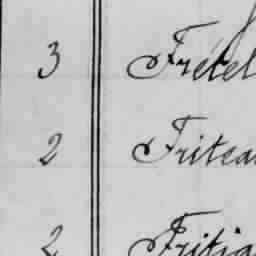 3 Frétel
2 Fritea
2 Fritia